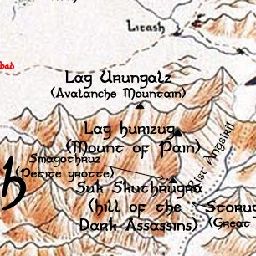 Litash
bab
Lag Urungalz
(Avalanche Mountain)
Lag hurizug
(Mount of Pain)
Smagothruz
Suk Skuthrugra
(hill of the
Dark Assassins)
Storut
(Great